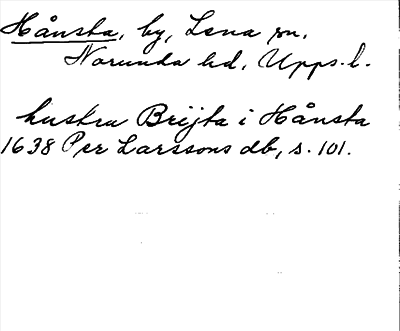 Hånsta, by, Lena sn,
Norunda hd, Upps. l.
hustru Brijta i Hånsta
1638 Per Larssons db, s. 101.